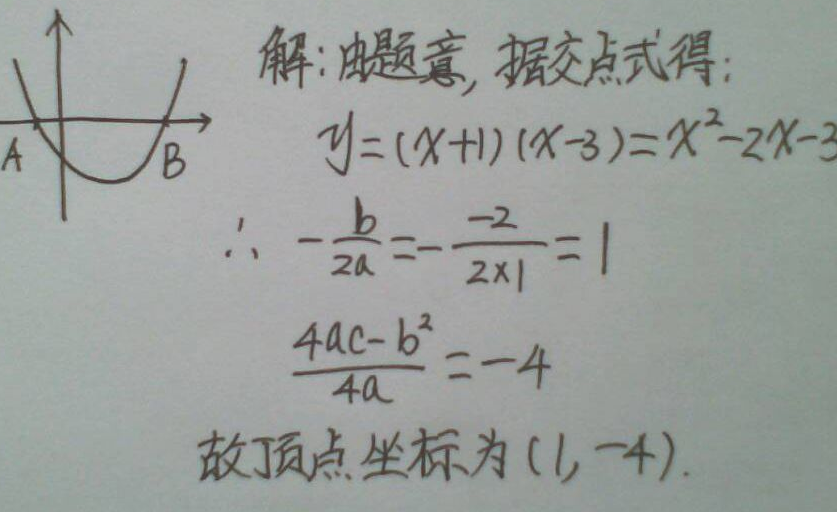 解:由题意,据交点式得:
y=(x+1)(x-3)=x²-2x-3
A B
∴ -b/2a=--2/2×1=1
4ac-b²/4a=-4
故顶点坐标为(1,-4).